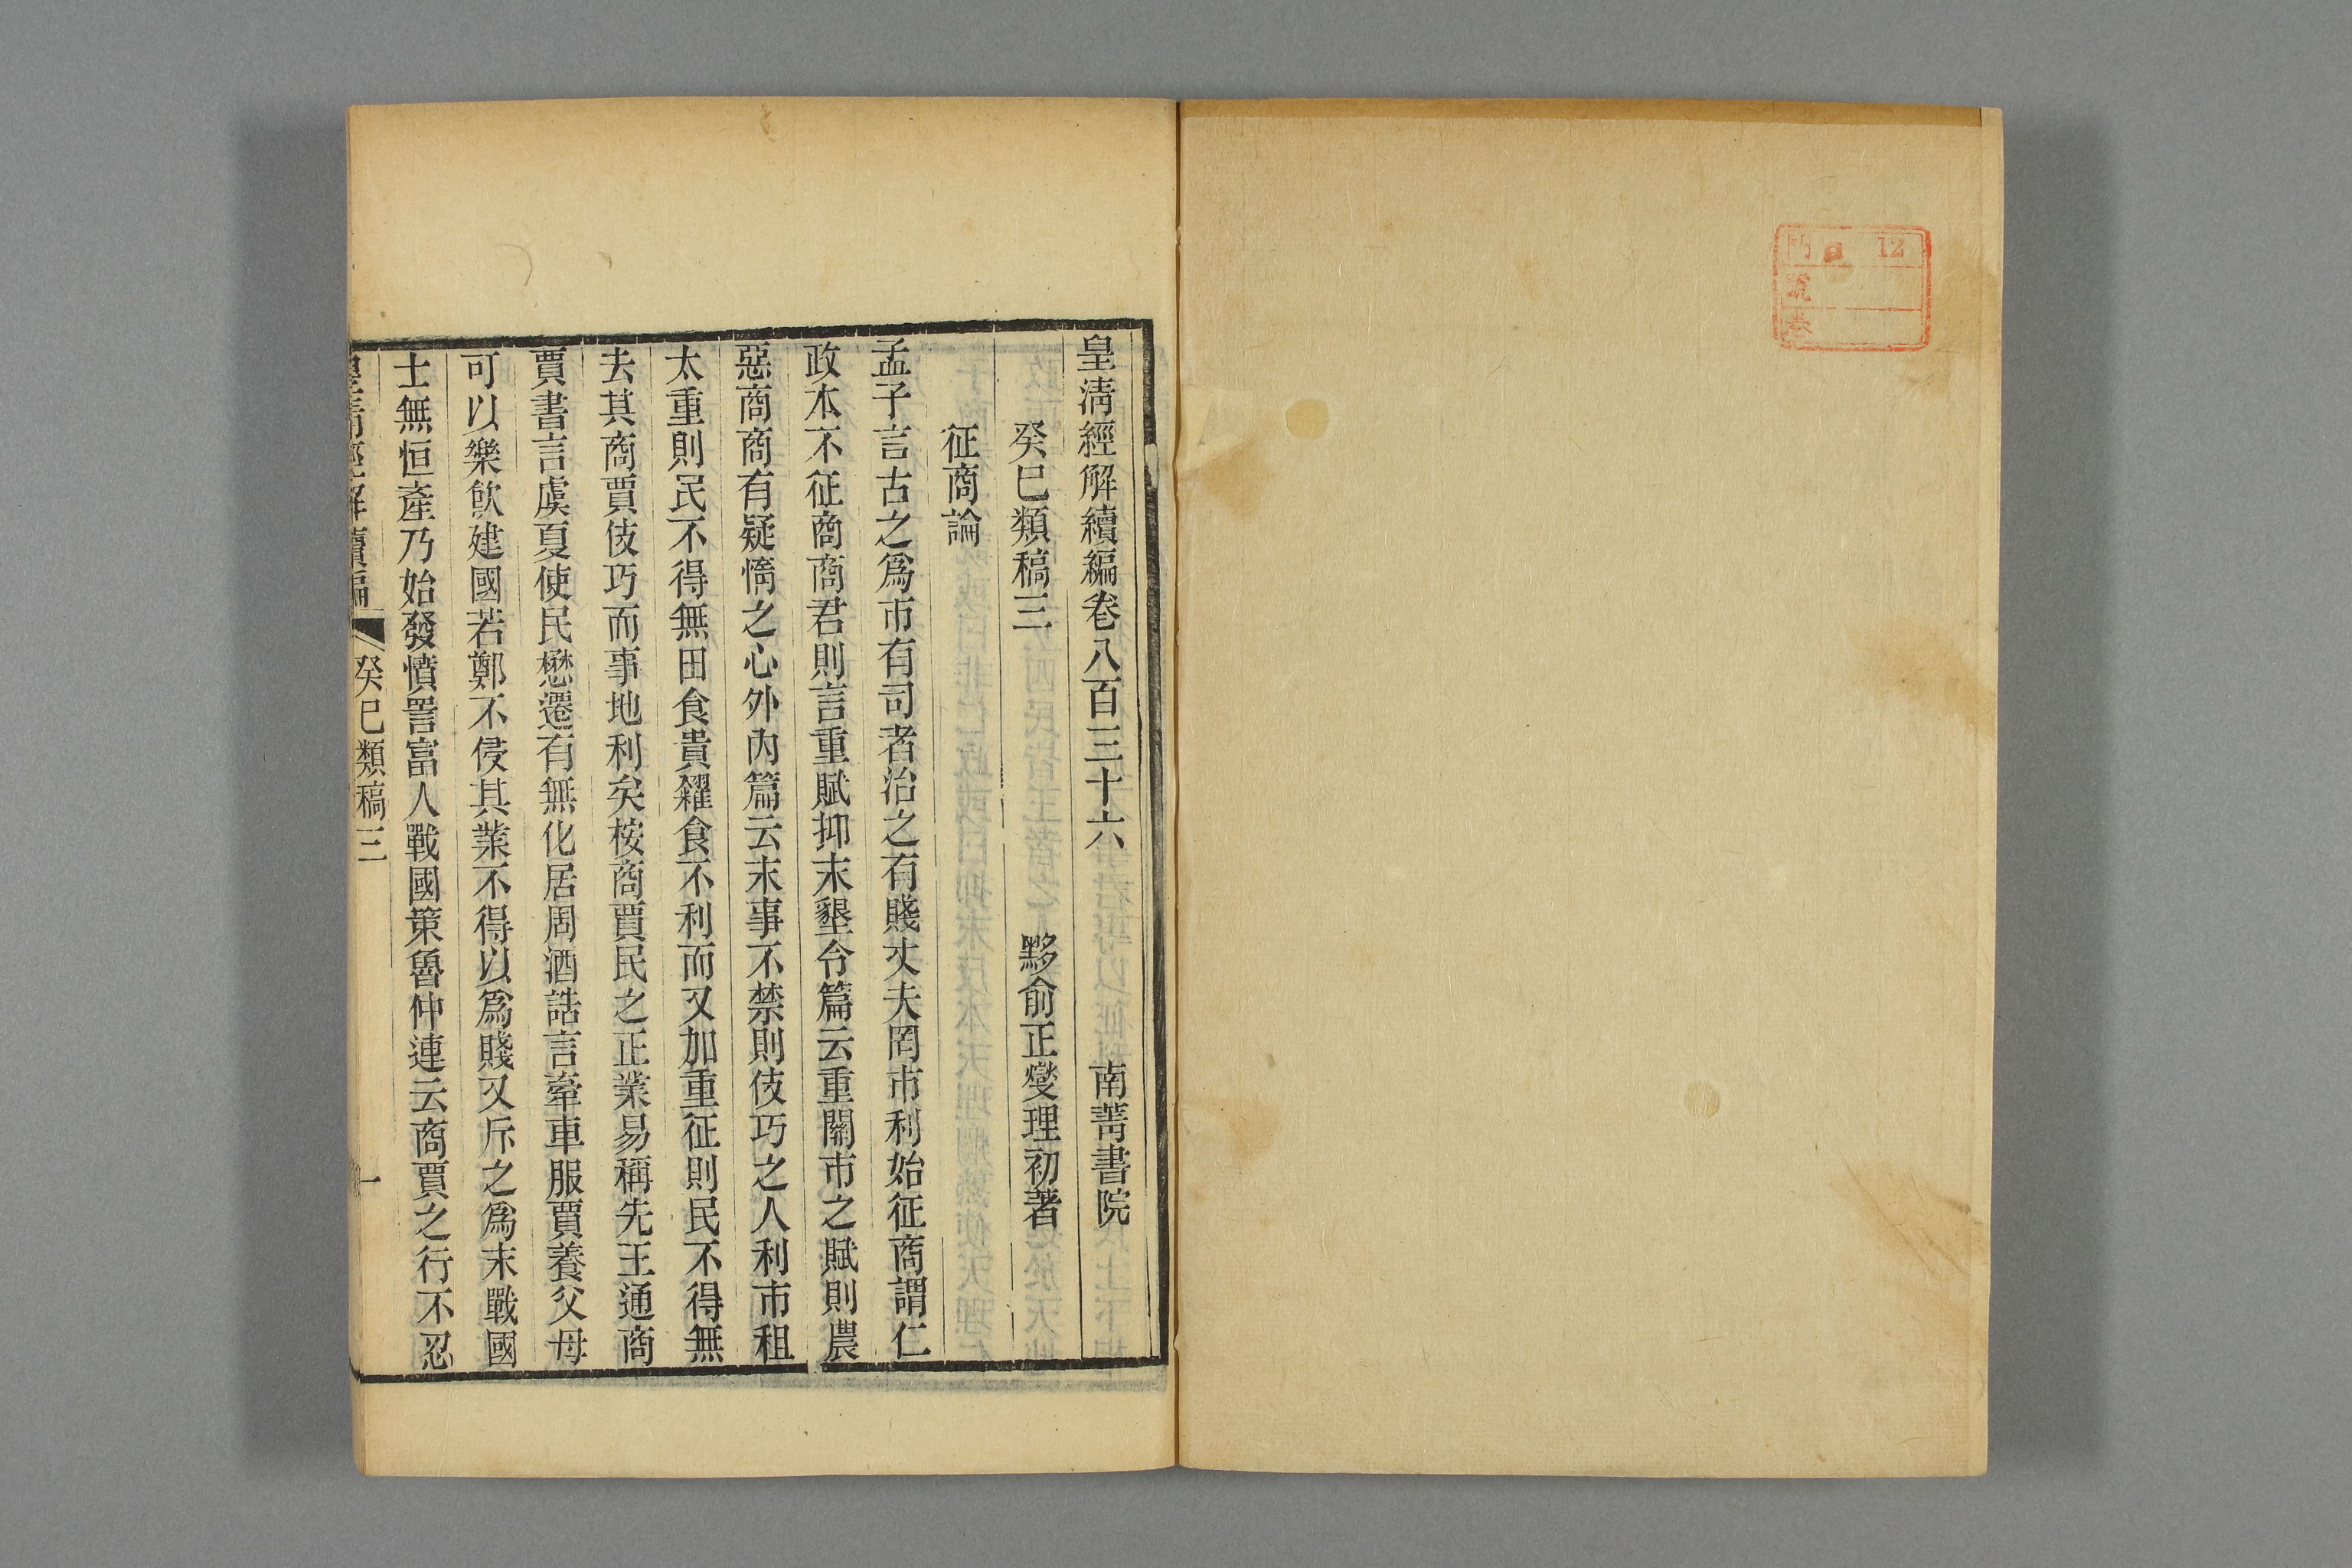 12
門
號
皇清經解續編卷八百三十六 南菁書院
癸巳類稿三 黟俞正燮理初著
征商論
孟子言古之爲市有司者治之有賤丈夫罔市利始征商謂仁
政本不征商商君則言重賦抑末墾令篇云重關市之賦則農
惡商商有疑惰之心外內篇云末事不禁則伎巧之人利市租
太重則民不得無田食貴糴食不利而又加重征則民不得無
去其商賈伎巧而事地利矣桉商賈民之正業易稱先王通商
賈書言虞夏使民懋遷有無化居周酒誥言牽車服賈養父母
可以樂飮建國若鄭不侵其業不得以爲賤又斥之爲末戰國
士無恒產乃始發憤詈富人戰國策魯仲連云商賈之行不忍
皇清經解續編 癸巳類稿三 一